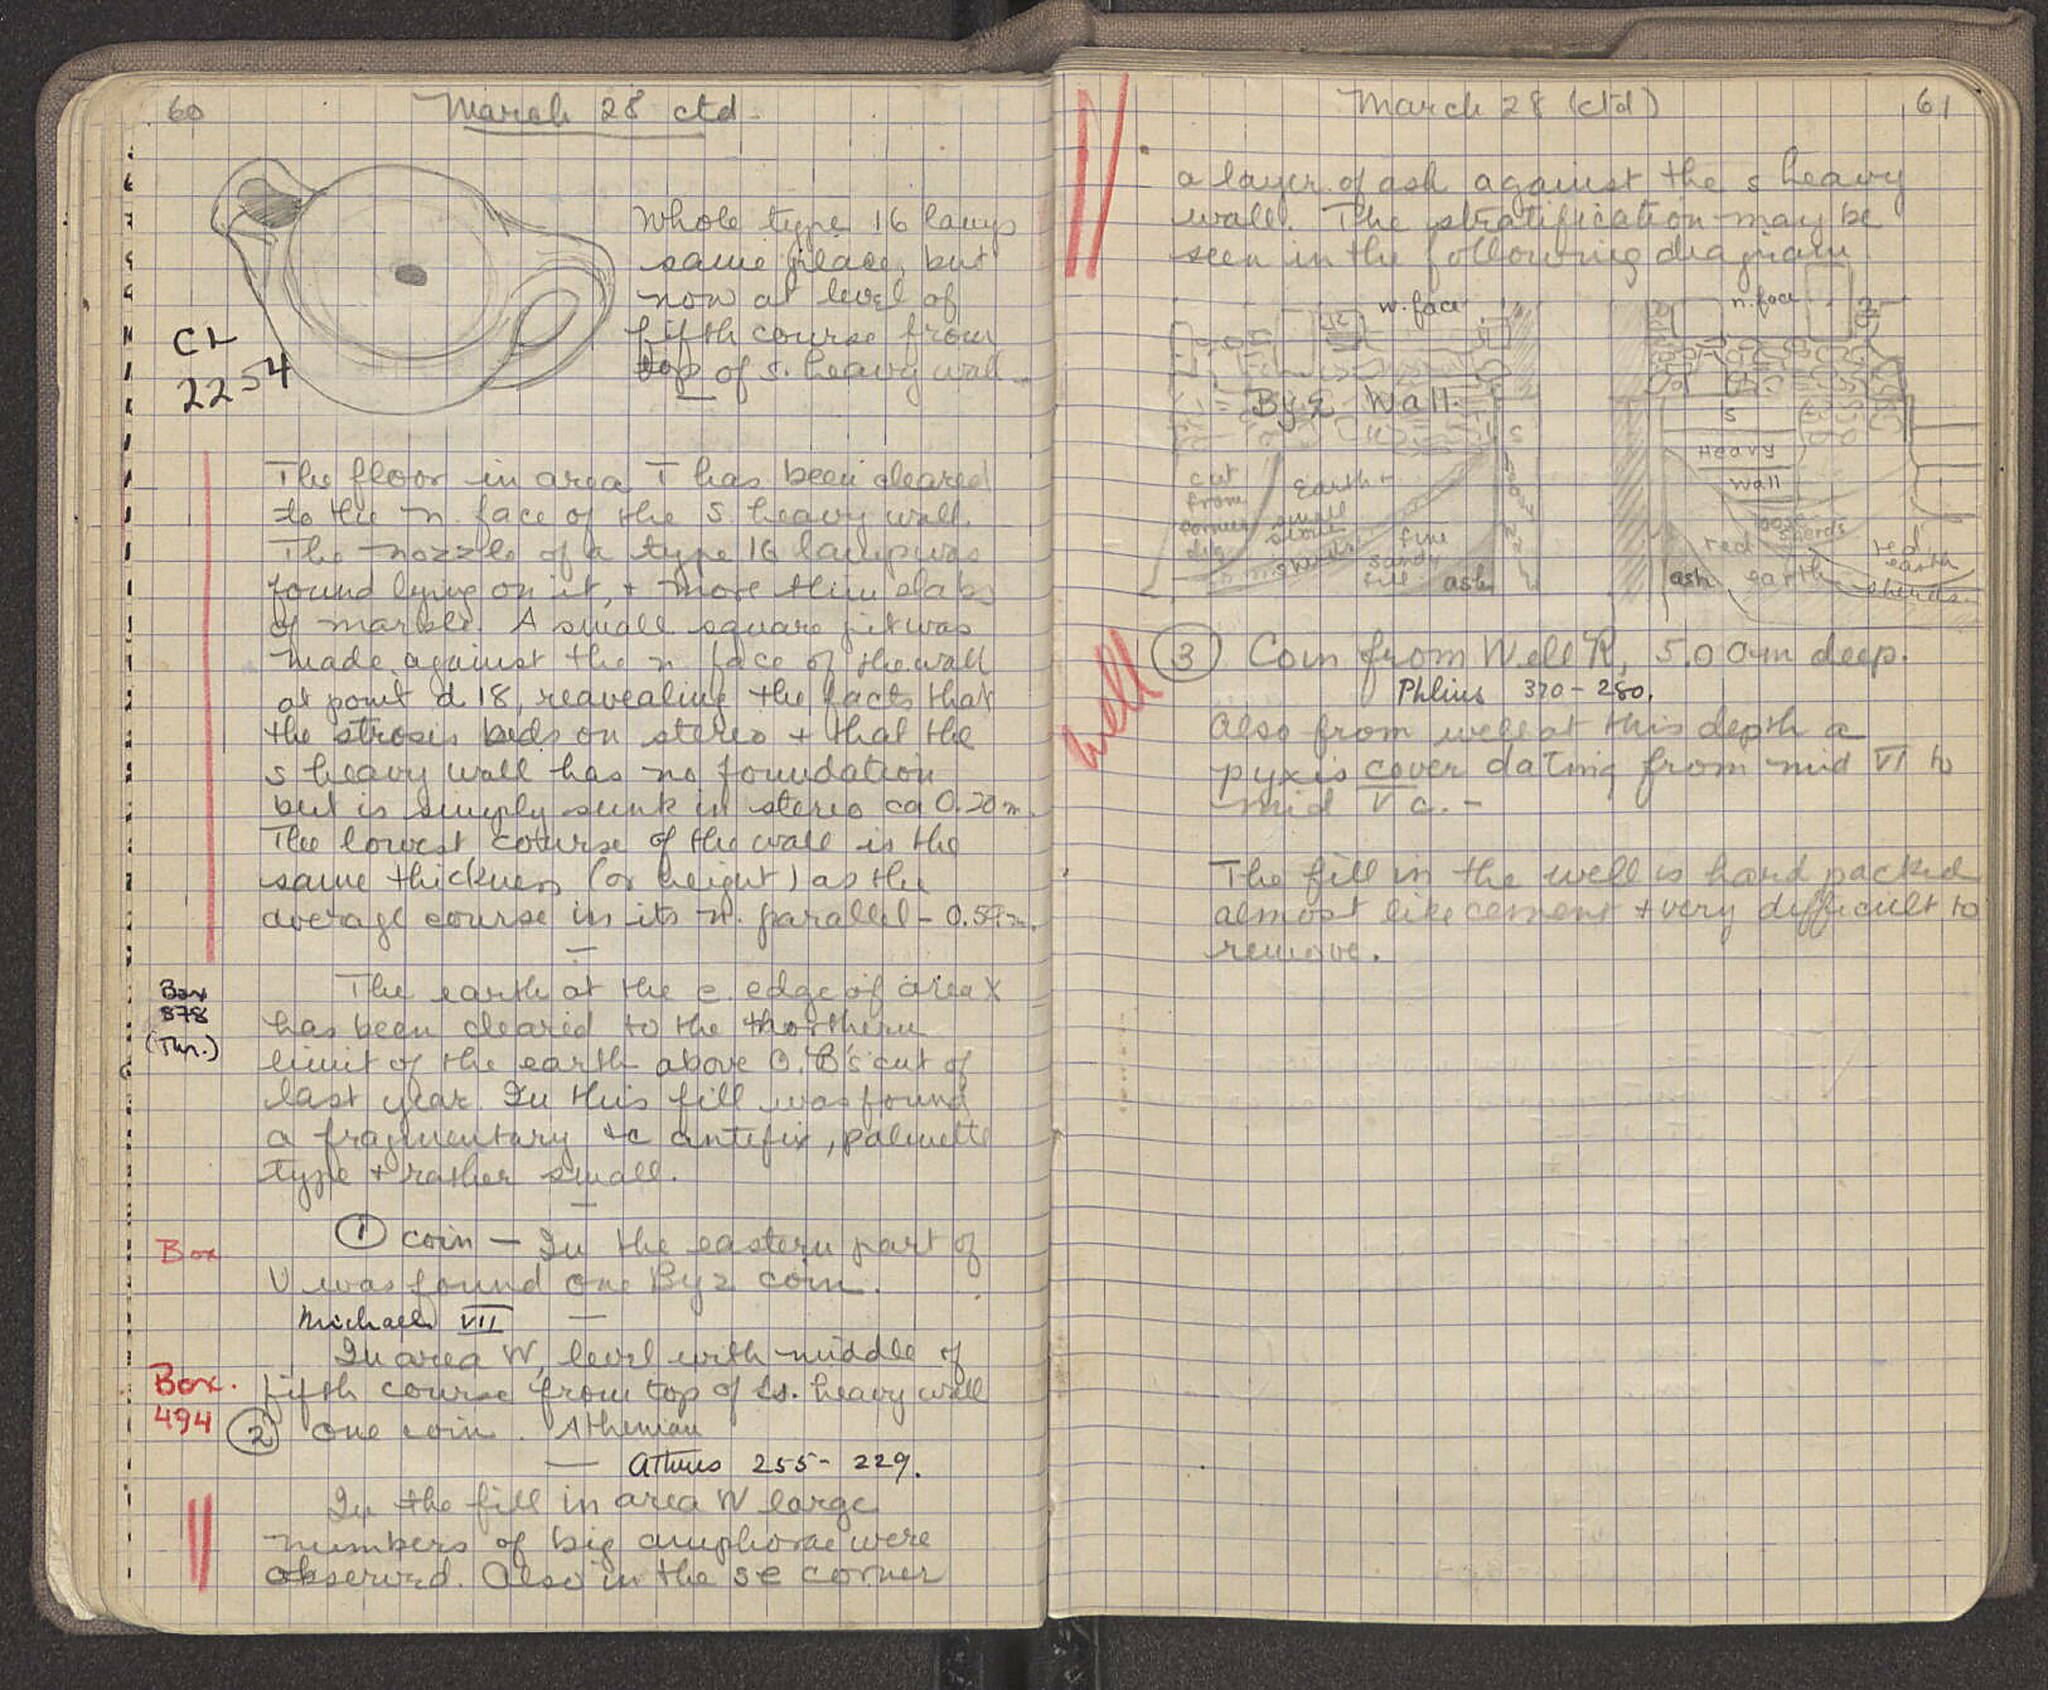 60
March 28 ctd -
Whole type 16 lamp
same place, but
now at level of
fifth course from
top of s. heavy wall
CL
2254
The floor in area T has been cleared
to the n. face of the S. heavy wall.
The nozzle of a type 16 lamp was
found lying on it, + more thin slabs
of marble. A small square pit was
made against the n face of the wall
at point d 18, reavealing the facts that
the strosis beds on stereo + that the
s heavy wall has no foundation
but is simply sunk in stereo ca 0.20 m.
The lowest course of the wall is the
same thickness (or height) as the
average course in its n. parallel -
Box
878
(Thr.)
The earth at the e. edge of area X
has been cleared to the northern
limit of the earth above O.B's cut of
last year. In this fill was found
a fragmentary tc antefix, palmette
type + rather small.
Box
① coin - In the eastern part of
U was found one Byz coin.
Michael VII
In area W, level with middle of
Box.
494
fifth course from top of s. heavy wall
② one coin. Athenian
Athens 255 - 229.
In the fill in area W large
numbers of big amphorae were
observed. Also in the se corner
March 28 (ctd)
61
a layer of ash against the s heavy
wall. The stratification may be
seen in the following diagram
w. face
Byz Wall.
cut
from
former
dig
Earth +
small
stones
sherds
fine
sandy
fill
ash
n. face
S
Heavy
Wall
sherds
red
earth
ash
red
earth
sherds.
well
③ Coin from Well R, 5.00m deep.
Phlius 370 - 280.
Also from well at this depth a
pyxis cover dating from mid VI to
mid V c. -
The fill in the well is hard packed
almost like cement + very difficult to
remove.